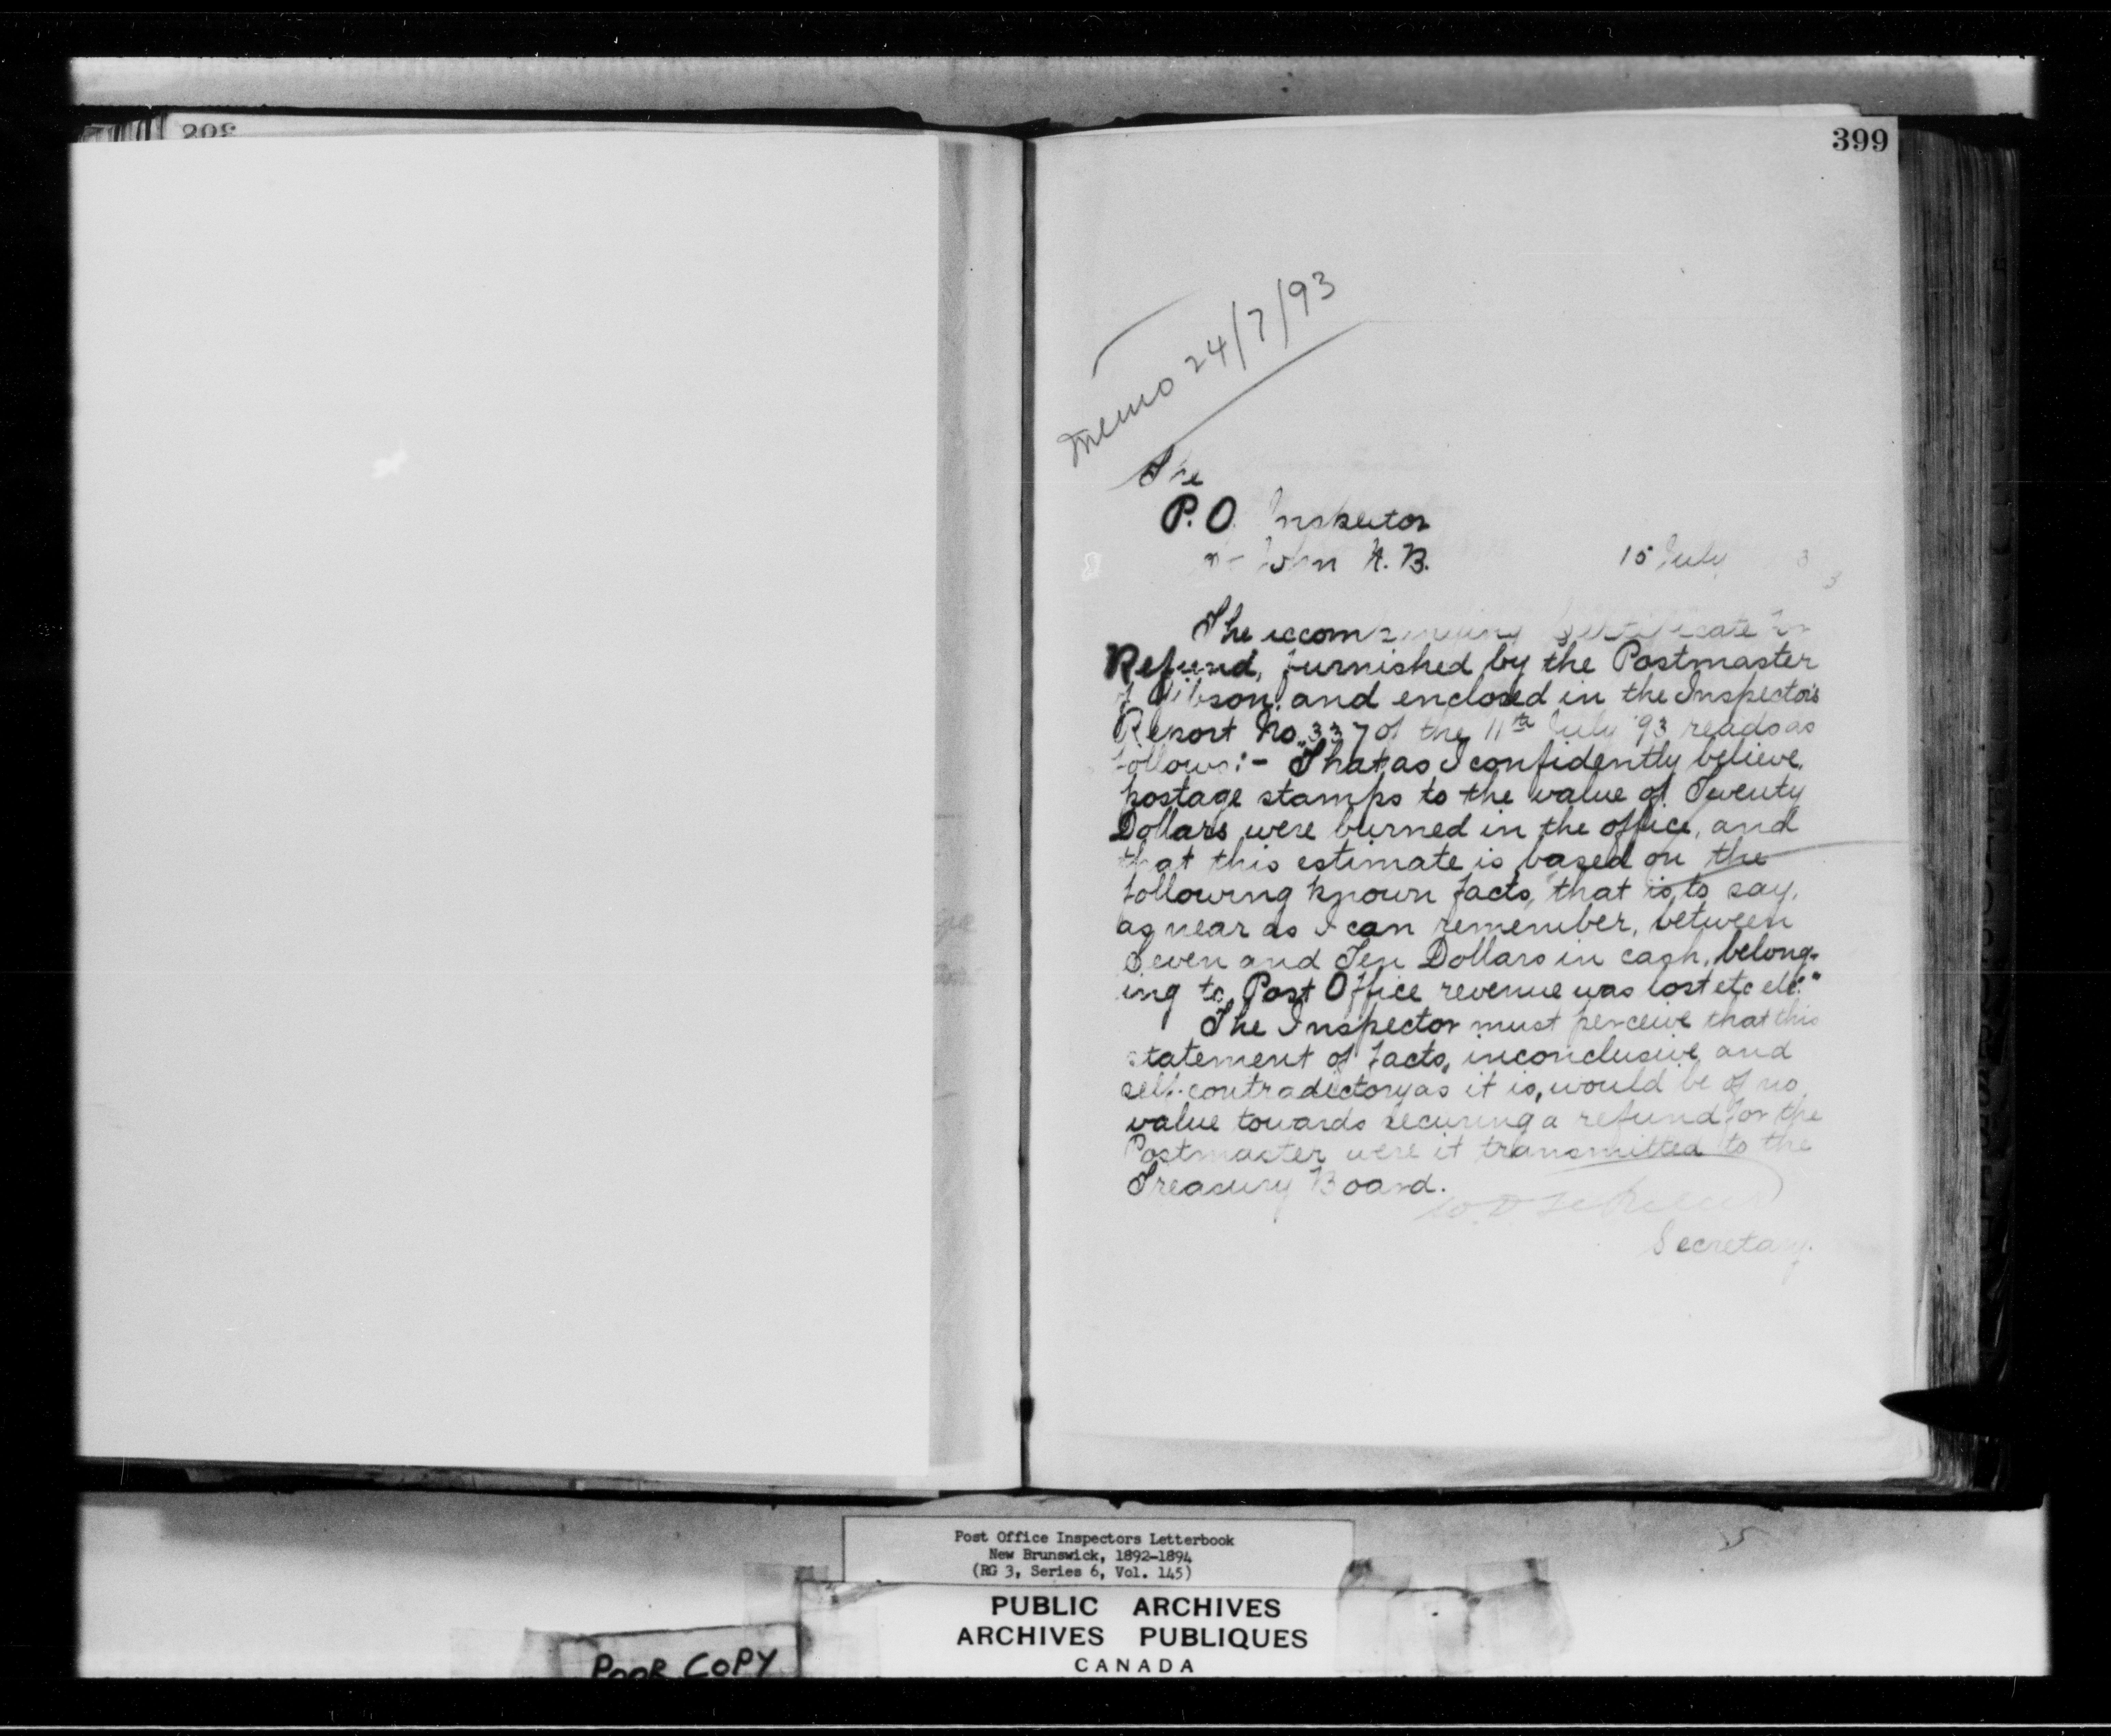 399
Memo 24/7/93
The
P.O. Inspector
John N.B.
15 July
The accompanying Certificate for
Refund, furnished by the Postmaster
of Gibson, and enclosed in the Inspector's
Report No. 337 of the 11th July '93 reads as
follows:- "That as I confidently believe,
postage stamps to the value of Twenty
Dollars were burned in the office, and
that this estimate is based on the
following known facts, that is to say,
as near as I can remember, between
Seven and Ten Dollars in cash, belong-
ing to Post Office revenue was lost etc etc."
The Inspector must perceive that this
statement of facts, inconclusive and
self-contradictory as it is, would be of no
value towards securing a refund for the
Postmaster were it transmitted to the
Treasury Board.
Secretary.
Post Office Inspectors Letterbook
New Brunswick, 1892-1894
(RG 3, Series 6, Vol. 145)
PUBLIC ARCHIVES
ARCHIVES PUBLIQUES
CANADA
POOR COPY